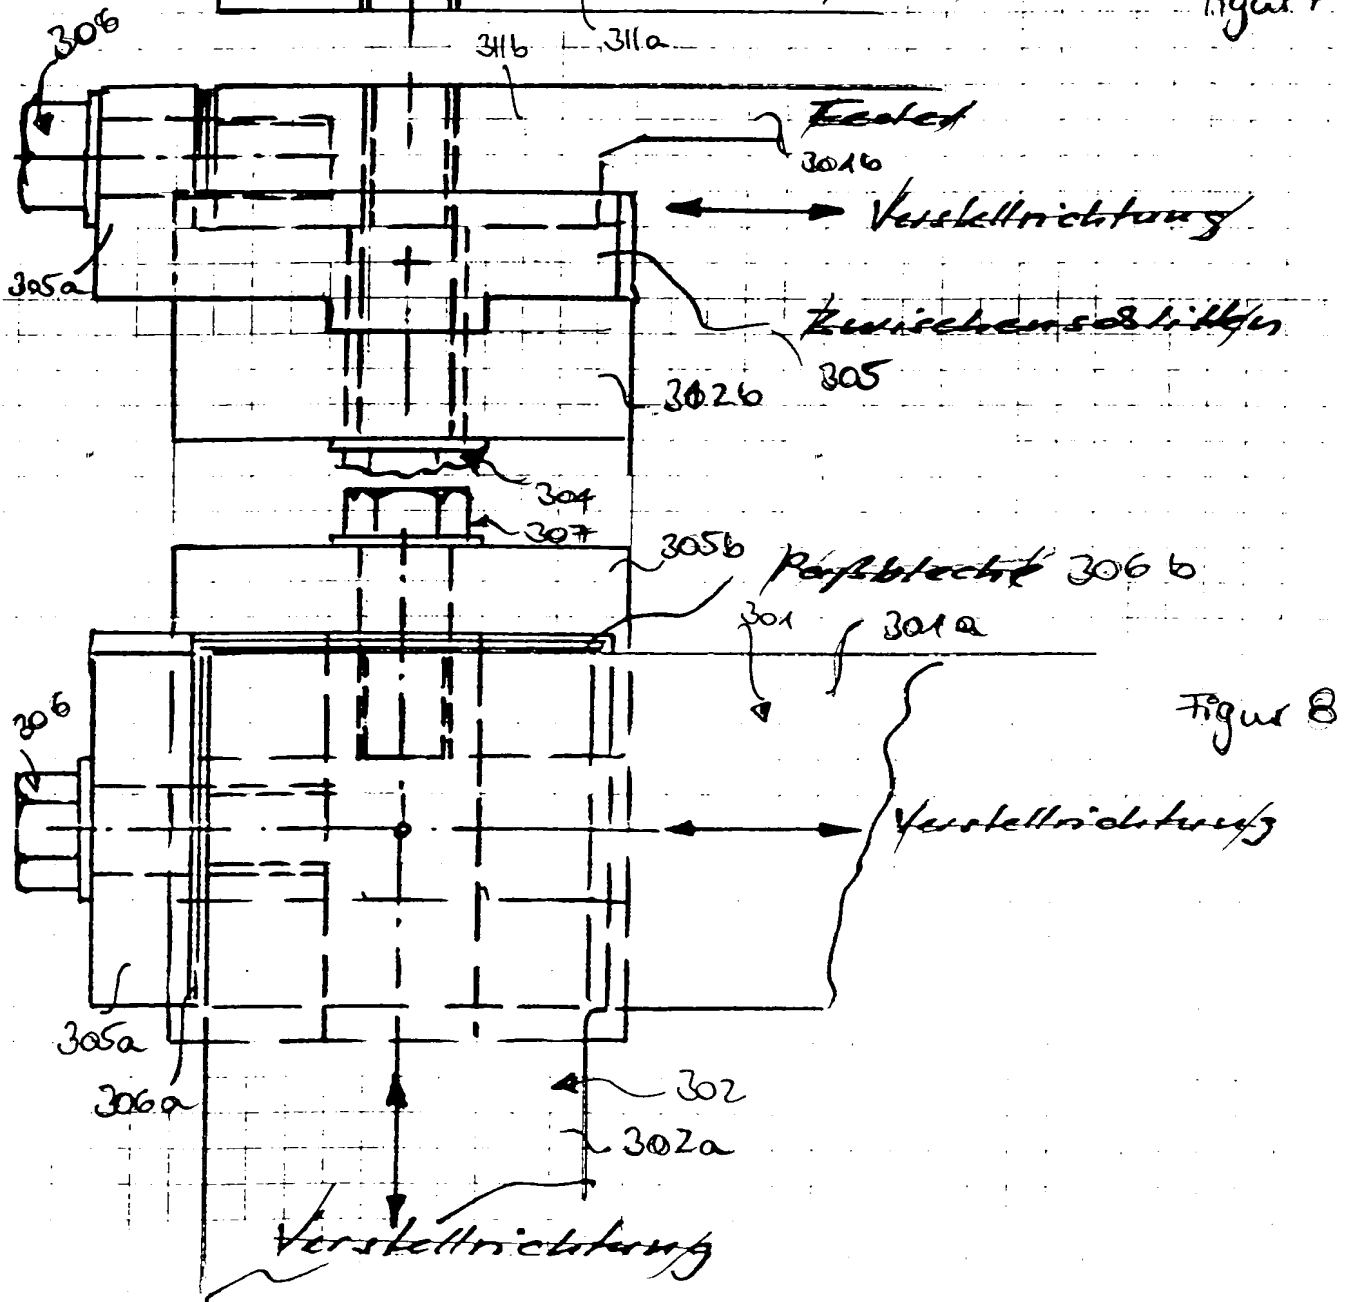 306
311b
311a
Figur
Feder
301b
Verstellrichtung
305a
Zwischenschlitten
305
302b
304
307
305b
Paßbleche 306b
301
301a
306
Figur 8
Verstellrichtung
305a
306a
302
302a
Verstellrichtung